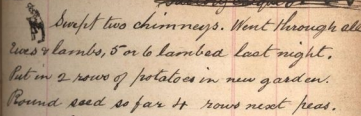 Swept two chimneys. Went through all
Ewes & lambs, 5 or 6 lambed last night.
Put in 2 rows of potatoes in new garden.
Round seed so far 4 rows next peas.